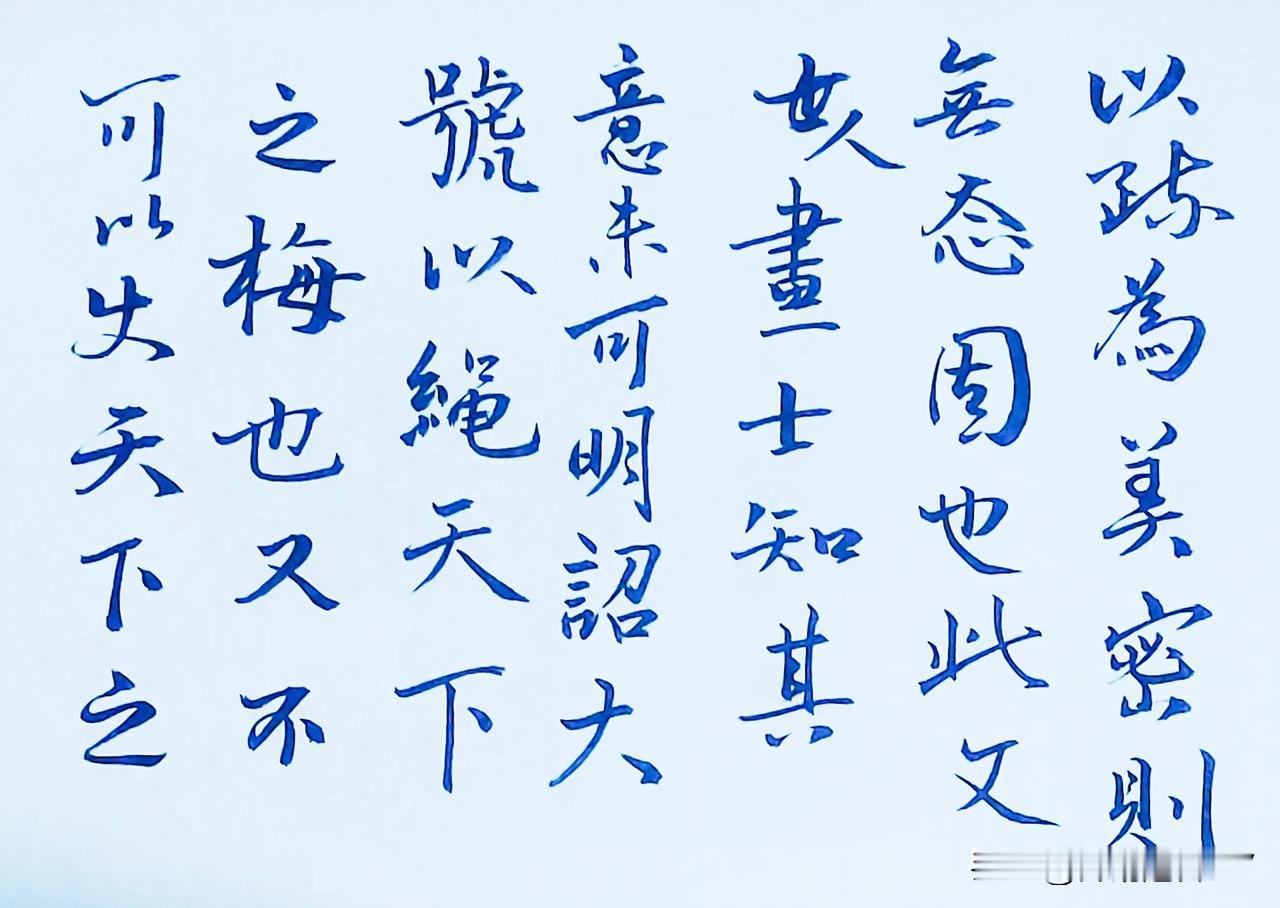 以疏為美密則
無态固也此文
人畫士知其
意未可明詔大
號以繩天下
之梅也又不
可以使天下之